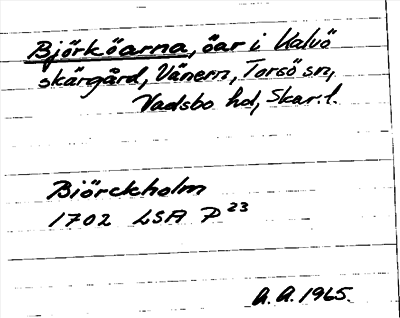 Björköarna, öar i Kalvö
skärgård, Vänern, Torsö sn,
Vadsbo hd, Skar. l.
Biörckholm
1702 LSA P 23
A. A. 1965.